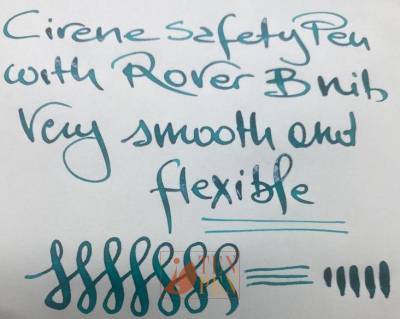 Cirene Safety Pen
with Rover B nib
Very smooth and
flexible